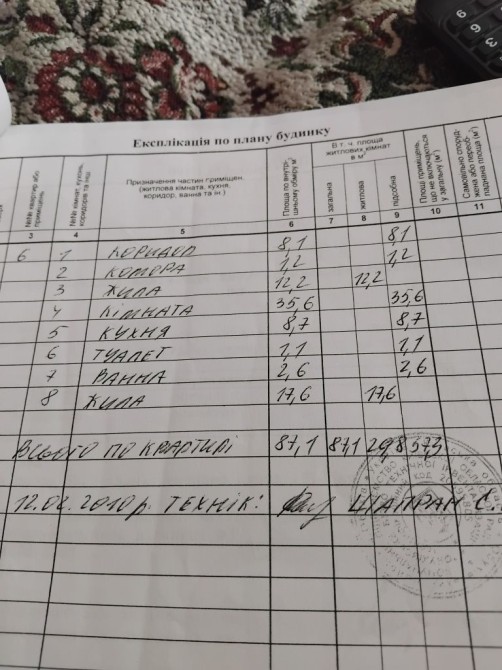 Експлікація по плану будинку
№№ квартир або приміщень
№№ кімнат, кухні, коридорів та інш
Призначення частин приміщень (житлова кімната, кухня, коридор, ванна та ін.)
Площа по внутрішньому обміру м²
В т. ч. площа житлових кімнат в м²
загальна
житлова
підсобна
Площі приміщень, що не включаються у загальну (м²)
3 4 5 6 7 8 9 10 11
6 1 КОРИДОР 8,1 8,1
2 КОМОРА 1,2 1,2
3 ЖИЛА 12,2 12,2
4 КІМНАТА 35,6 35,6
5 КУХНЯ 8,7 8,7
6 ТУАЛЕТ 1,1 1,1
7 ВАННА 2,6 2,6
8 ЖИЛА 17,6 17,6
ВСЬОГО ПО КВАРТИРІ 87,1 87,1 29,8 57,3
2010р. ТЕХНІК: ШАПРАН С.